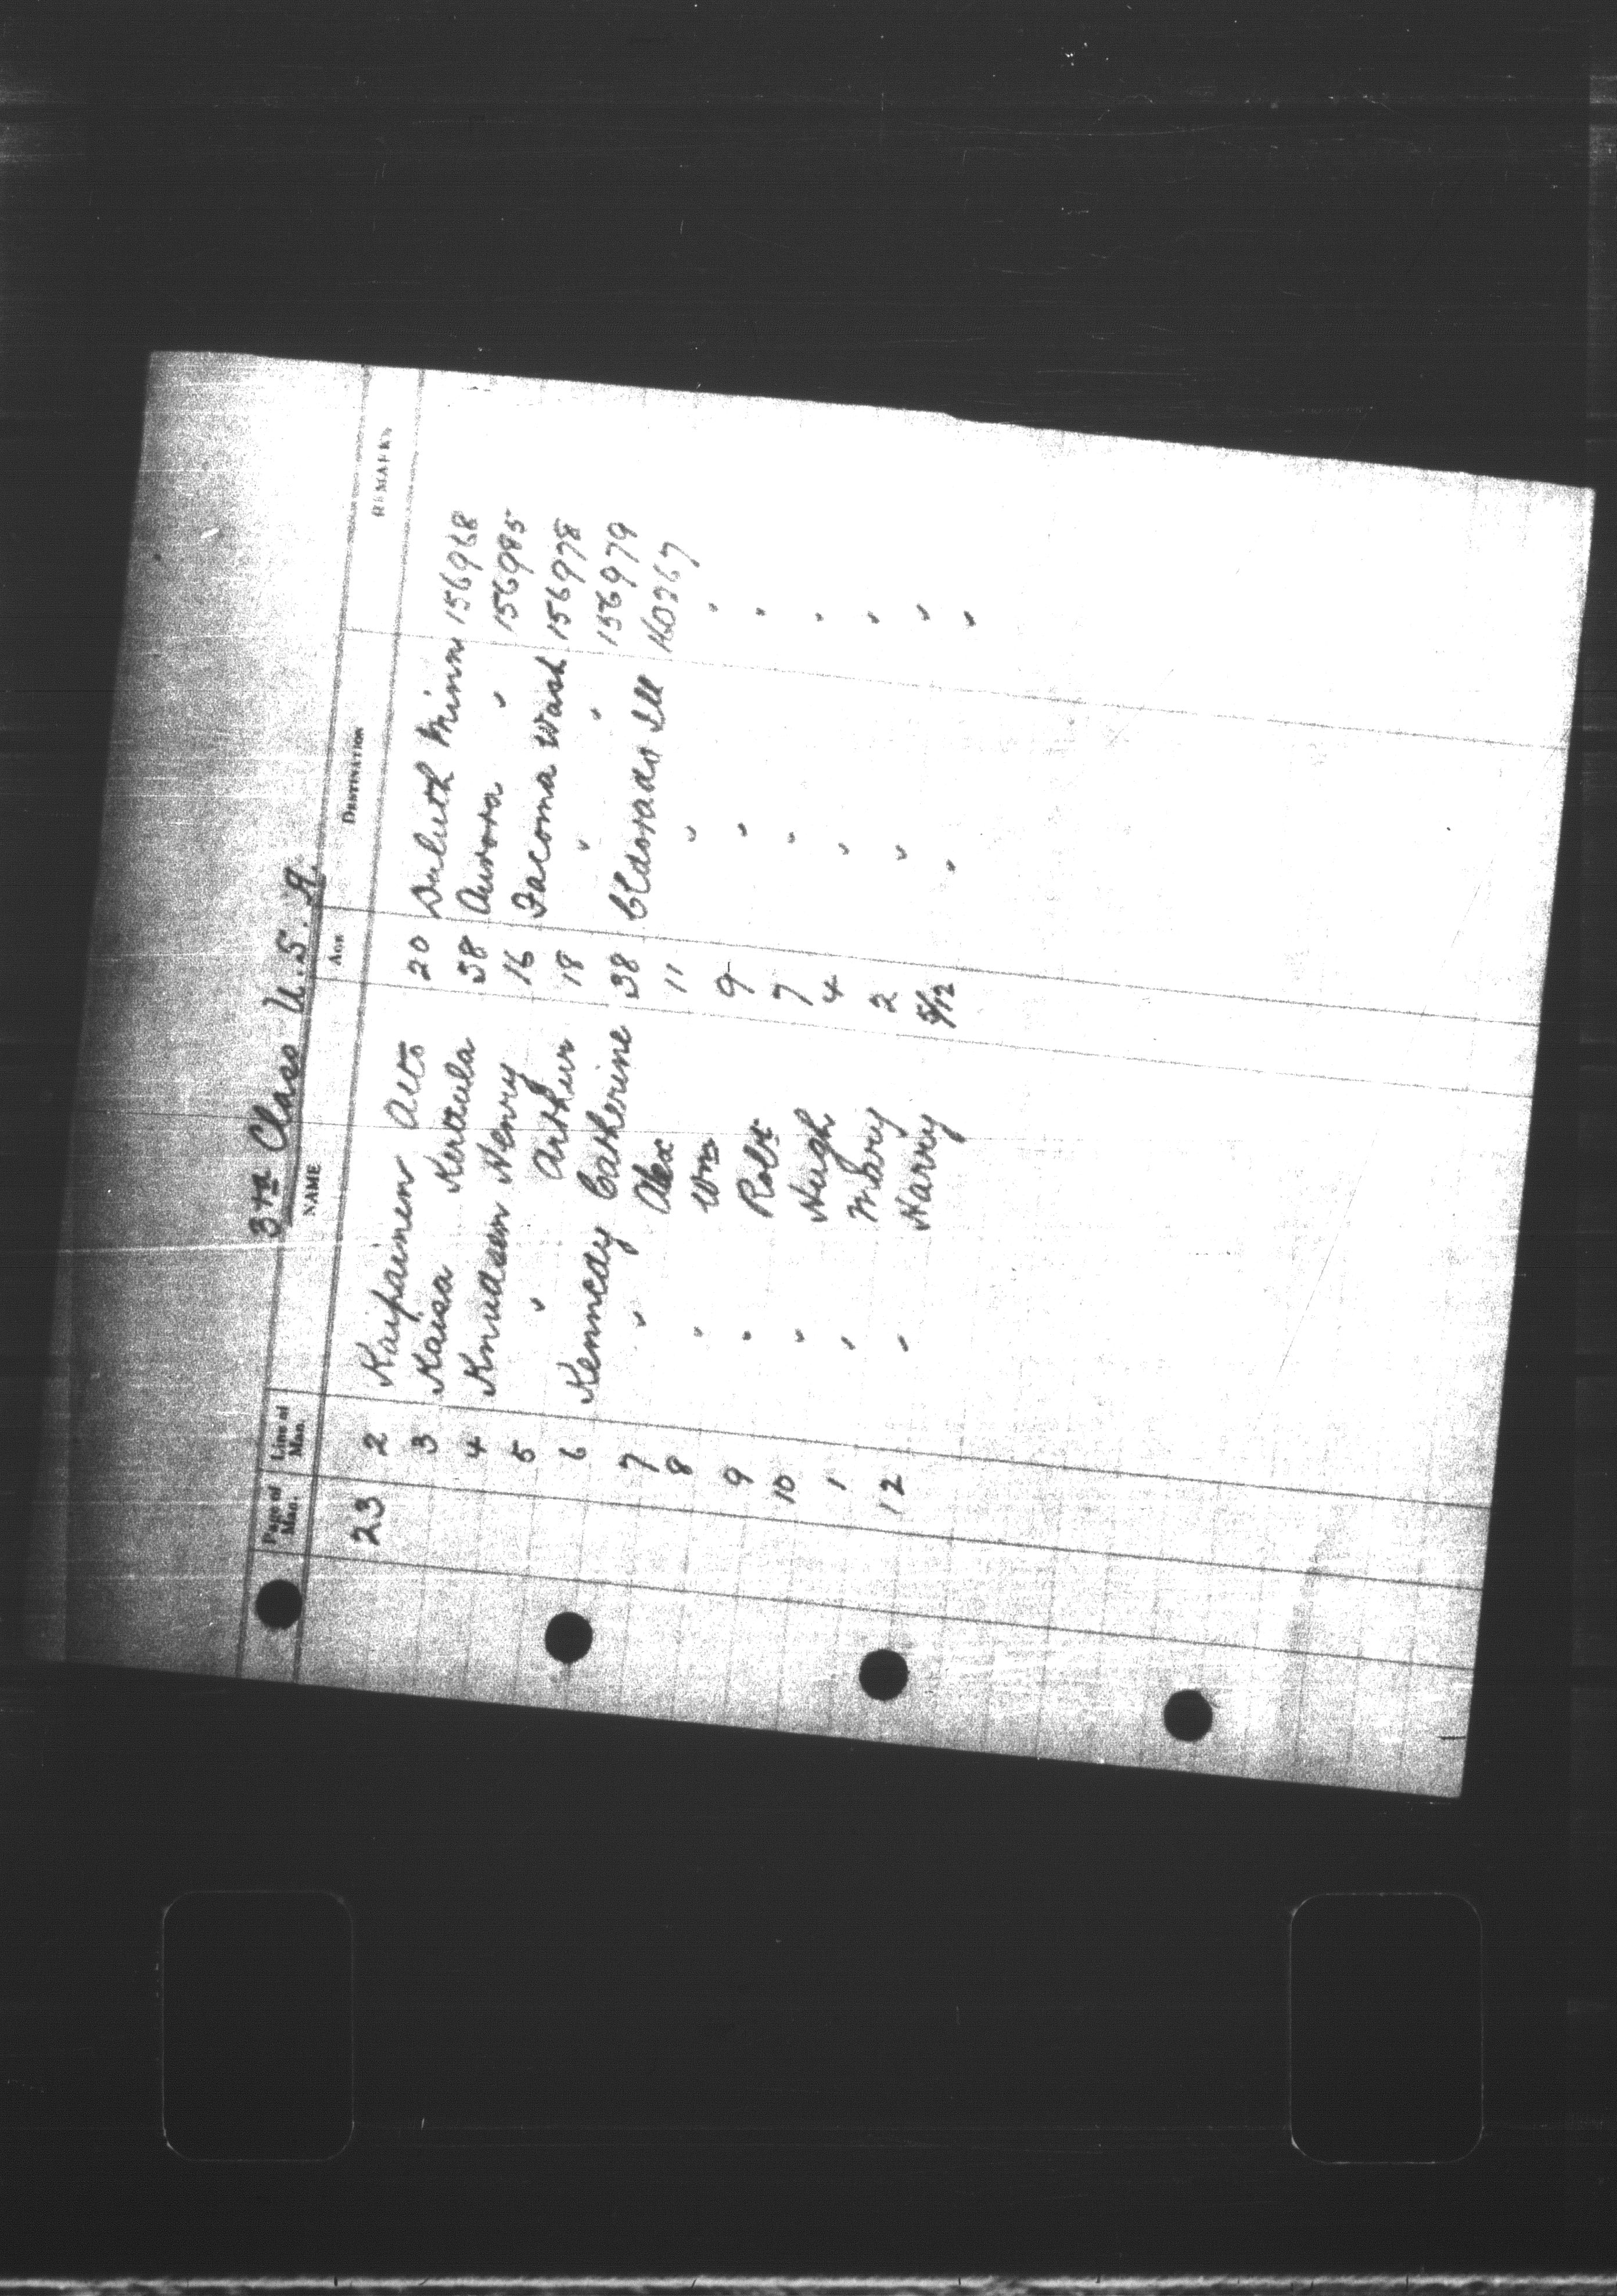 3rd Class U.S.A.
Page of Man. Line of Man. NAME AGE DESTINATION REMARKS
23 2 Kaipainen Arto 20 Duluth Minn 156968
3 Kaisa Kerttula 38 Aurora " 156985
4 Knudsen Henry 16 Tacoma Wash 156978
5 " Arthur 18 " " 156979
6 Kennedy Catherine 38 Eldorado Ill
7 " Alex 11 " "
8 " Wm 9 " "
9 " Robt 7 " "
10 " Hugh 4 " "
1 " Mary 2 " "
12 " Harry /12 " "